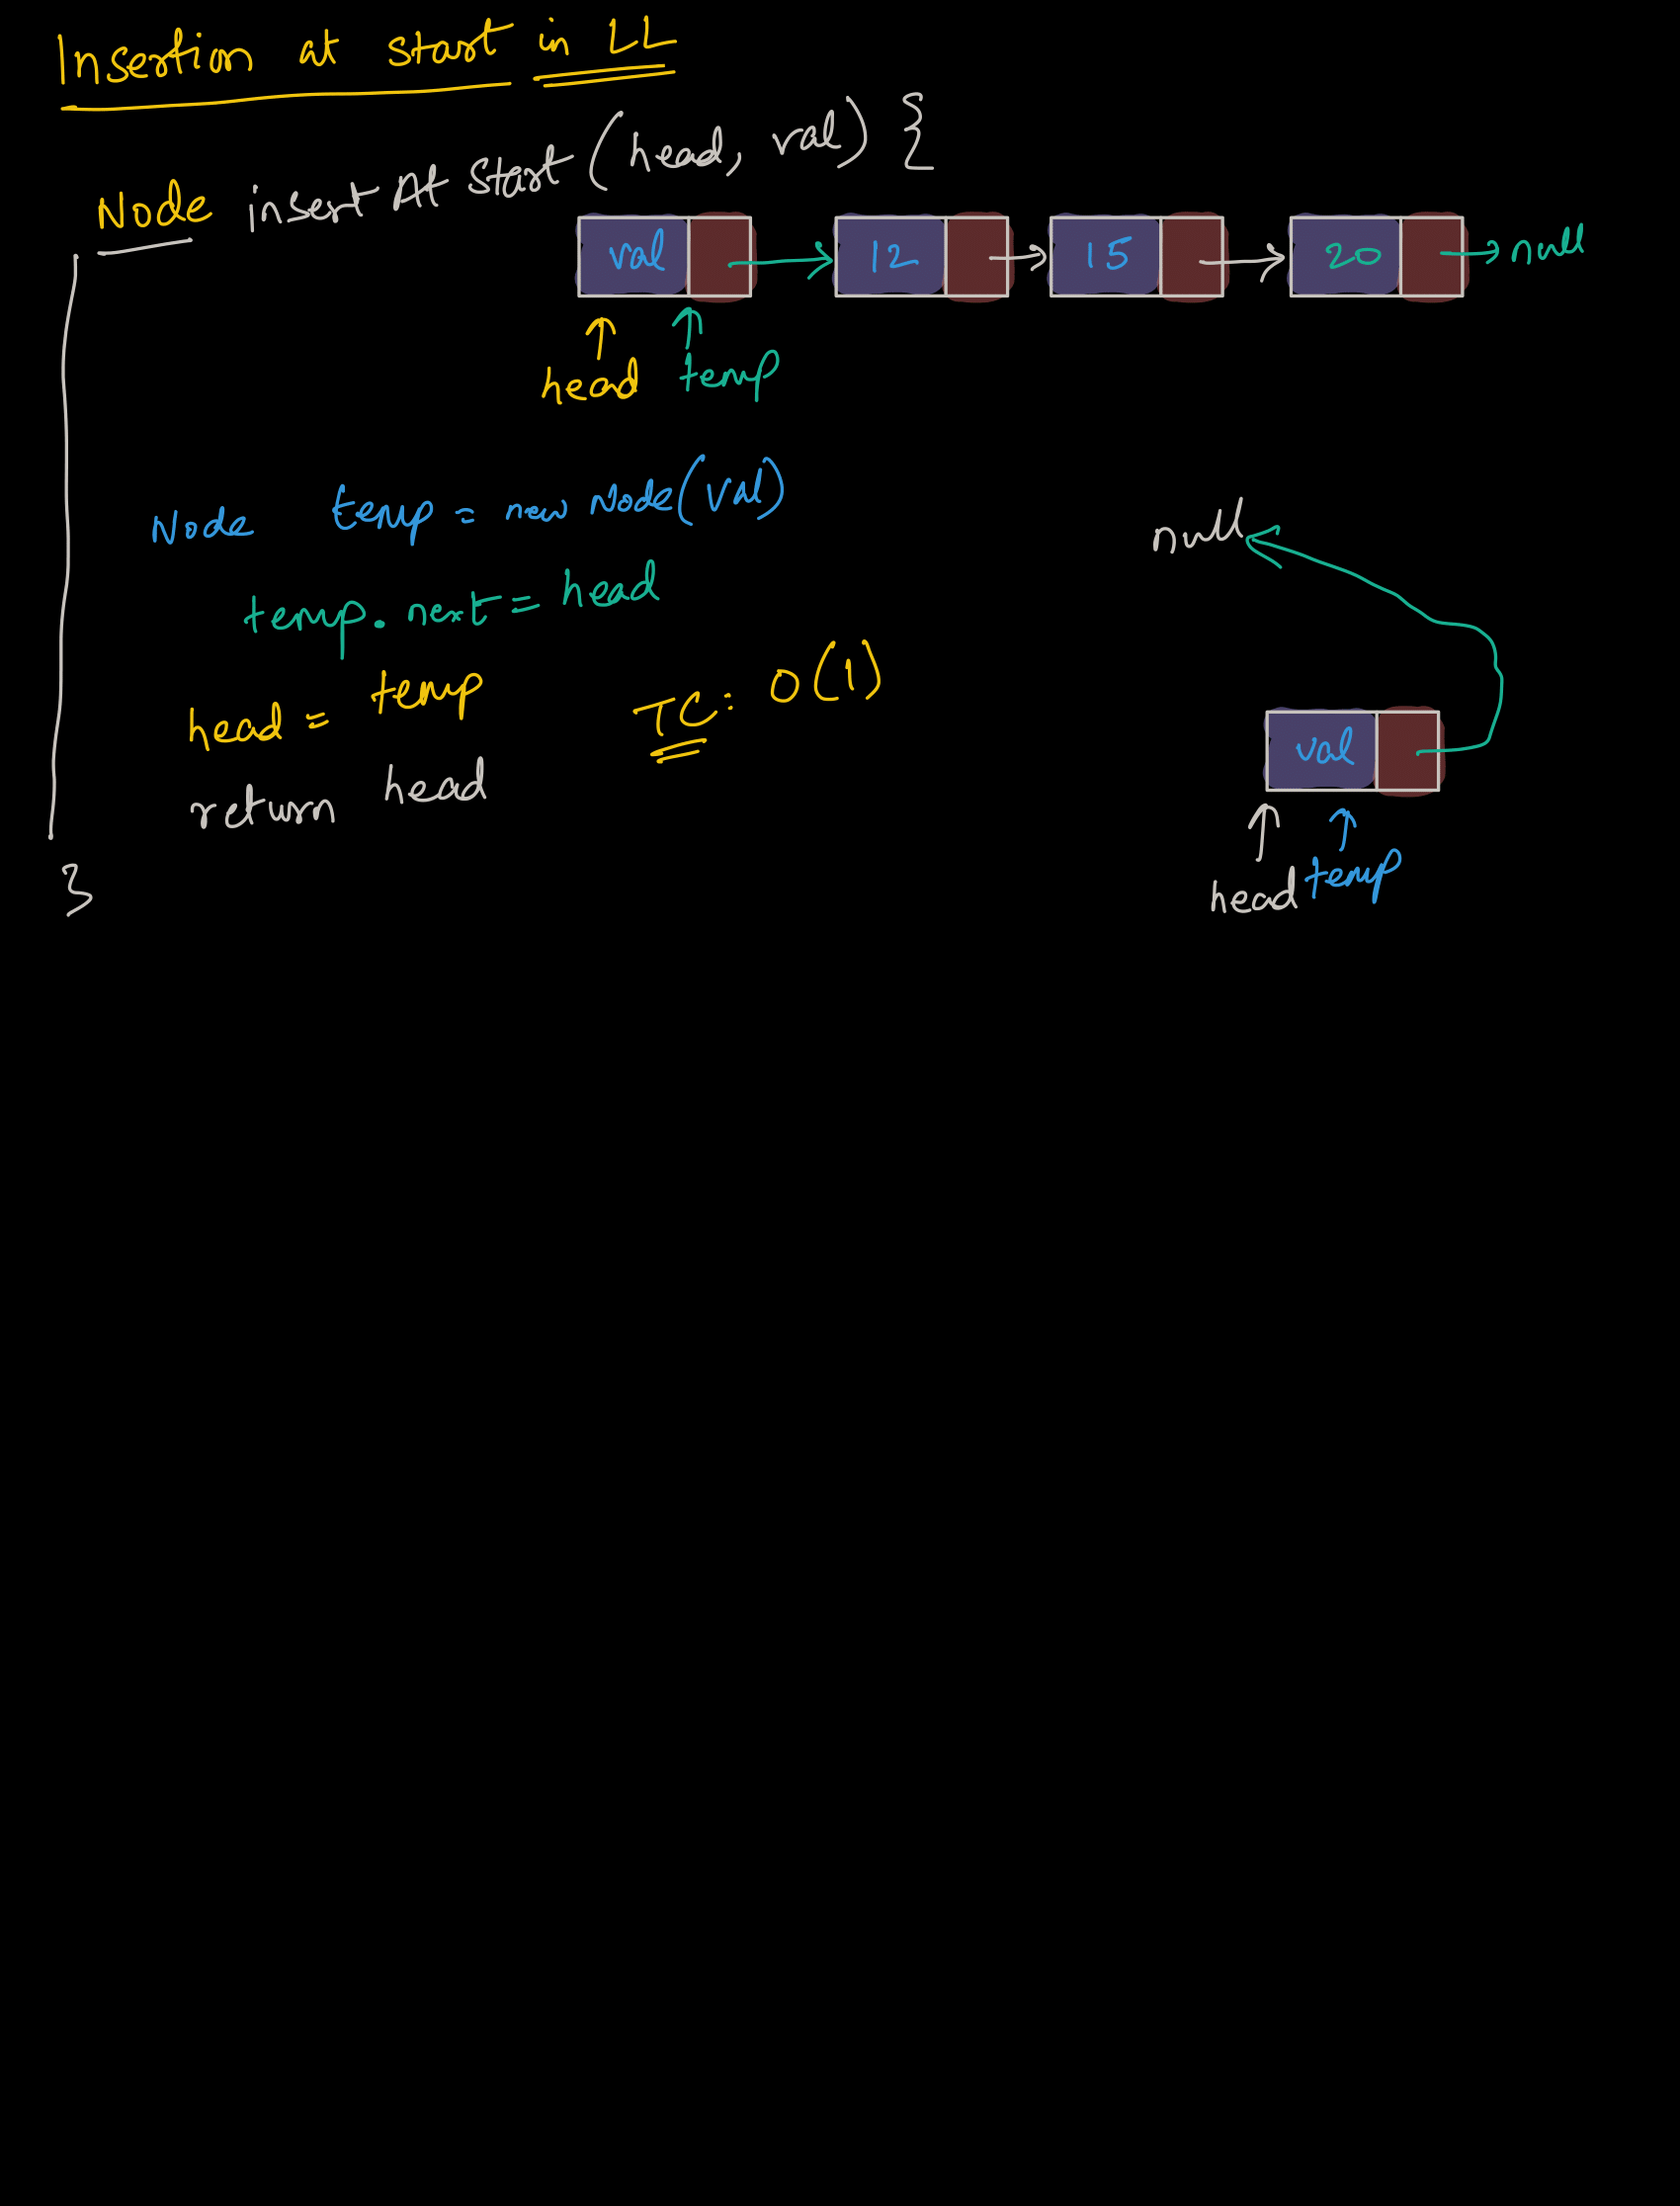 Insertion at start in LL
Node insert At Start (head, val) {
val 12 15 20 null
head temp
Node temp = new Node(val)
null
temp.next = head
head = temp
TC: O(1)
val
return head
head temp
}